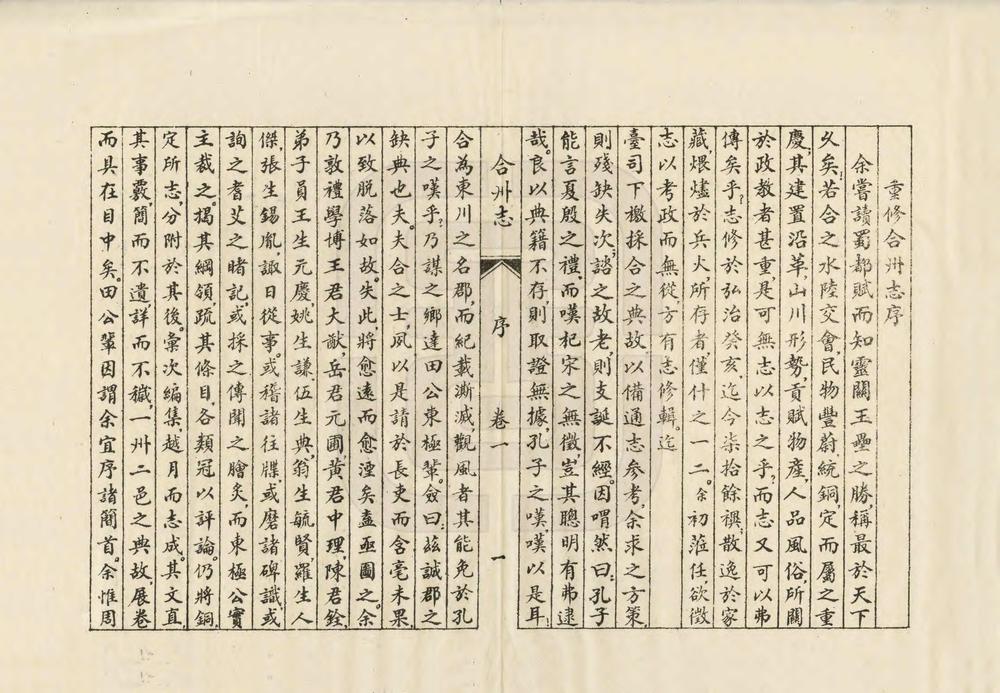 重修合州志序
余嘗讀蜀都賦而知靈關王壘之勝,稱最於天下
久矣!若合之水陸交會,民物豐蔚,統銅定而屬之重
慶;其建置沿革,山川形勢,貢賦物產,人品風俗,所關
於政教者甚重,是可無志以志之乎?而志又可以弗
傳矣乎?志修於弘治癸亥,迄今柒拾餘禩,散逸於家
藏,煨燼於兵火,所存者僅什之一二。余初蒞任,欲徵
志以考政而無從,方有志修輯。迄
臺司下檄採合之典故以備通志參考,余求之方策,
則殘缺失次;諮之故老,則支誕不經。因喟然曰:孔子
能言夏殷之禮,而嘆杞宋之無徵,豈其聰明有弗逮
哉。良以典籍不存,則取證無據,孔子之嘆,嘆以是耳!
合州志 序 卷一 一
合為東川之名郡,而紀載澌滅,觀風者其能免於孔
子之嘆乎?乃謀之鄉達田公東極輩。僉曰:茲誠郡之
缺典也夫。夫合之士,夙以是請於長吏而含毫未果,
以致脱落如故。失此,將愈遠而愈湮矣,盍亟圖之。余
乃敦禮學博王君大猷,岳君元圃,黃君中理,陳君銓,
弟子員王生元慶,姚生謙,伍生典,翁生毓賢,羅生人
傑,張生錫胤,諏日從事。或稽諸往牒,或磨諸碑識,或
詢之耆艾之睹記,或採之傳聞之膾炙,而東極公實
主裁之。揭其綱領,疏其條目,各類冠以評論。仍將銅,
定所志,分附於其後。彙次編集,越月而志成。其文直,
其事覈,簡而不遺,詳而不穢,一州二邑之典故,展卷
而具在目中矣。田公輩因謂余宜序諸簡首。余惟周